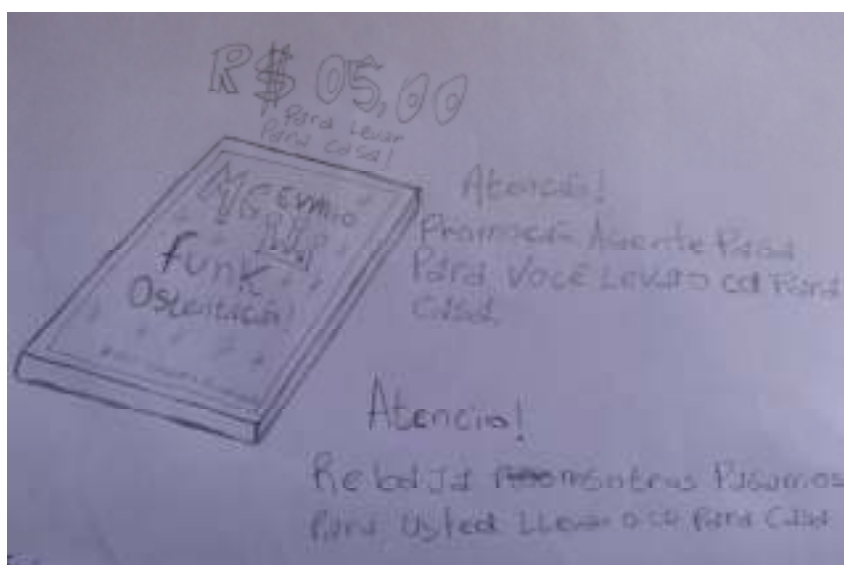 R$ 05,00
Para Levar
Para casa!
MC
Funk
Ostentação!
Atenção!
Promoção Agente Paga
Para Você Levar o cd Para
Casa.
Atencio!
Rebaja mientras Pagamos
Para Usted LLevar o cd Para Casa